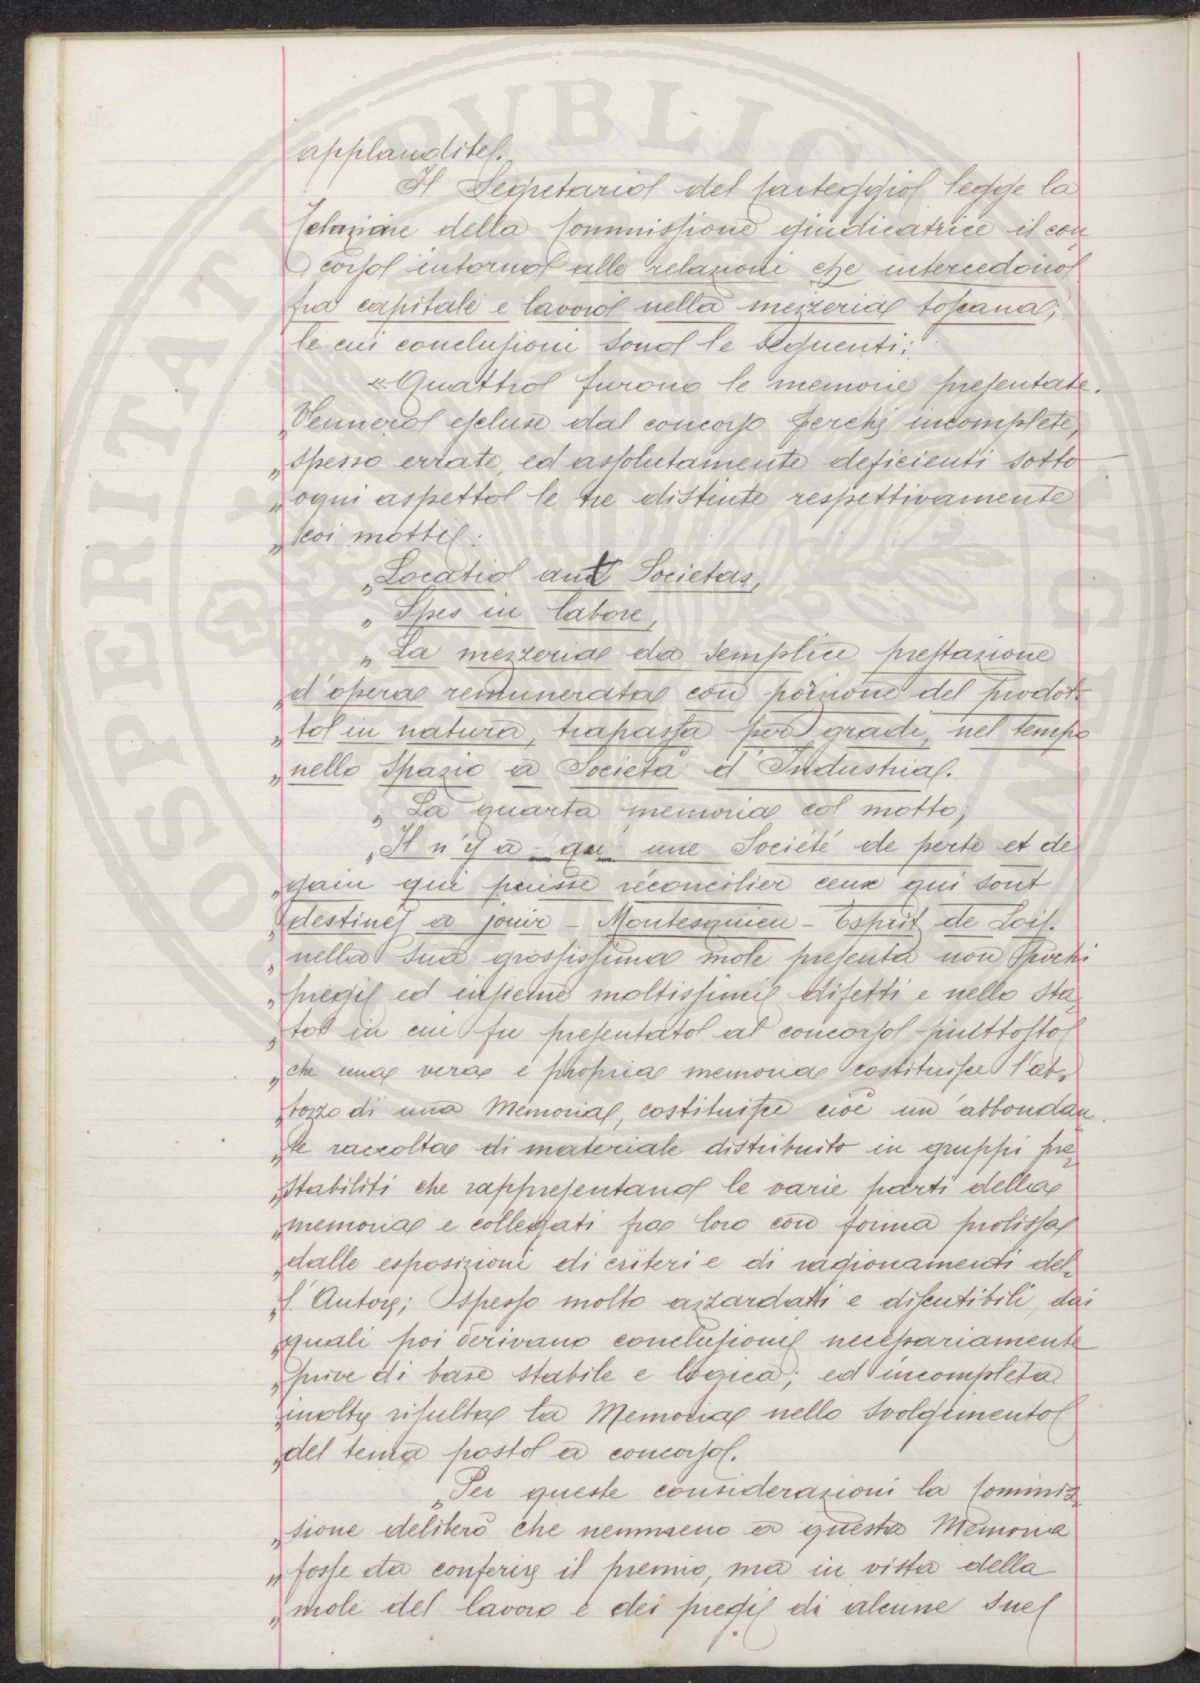 applaudite.
Il Segretario del Carteggio legge la
Relazione della Commissione giudicatrice il con
corso intorno alle relazioni che intercedono
fra capitale e lavoro nella mezzeria toscana;
le cui conclusioni sono le seguenti:
«Quattro furono le memorie presentate.
„Vennero escluse dal concorso perchè incomplete,
„spesso errate, ed assolutamente deficienti sotto
„ogni aspetto le tre distinte respettivamente
„coi motti:
„Locatio aut Societas,
„Spes in labore,
„La mezzeria da semplice prestazione
„d'opera remunerata con porzione del prodot-
„to in natura, trapassa per gradi, nel tempo
„nello Spazio a Società d'Industria.
„La quarta memoria col motto;
„Il n'y a qu' une Société de perte et de
„gain qui puisse réconcilier ceux qui sont
„destinés a jouir - Montesquieu - Esprit de Lois.
„nella sua grossissima mole presenta non pochi
„pregi ed insieme moltissimi difetti e nello sta-
„to in cui fu presentato al concorso piuttosto
„che una vera e propria memoria costituisce l'ab-
„bozzo di una Memoria, costituisce cioè un'abbondan
„te raccolta di materiale distribuito in gruppi pre-
„stabiliti che rappresentano le varie parti della
„memoria e collegati fra loro con forma prolissa
„dalle esposizioni di criteri e di ragionamenti del-
„l'Autore; spesso molto azzardatti e discutibili, dai
„quali poi derivano conclusioni necessariamente
„prive di base stabile e logica; ed incompleta
„inoltre risulta la Memoria nello svolgimento
„del tema posto a concorso.
„Per queste considerazioni la Commis-
„sione deliberò che nemmeno a questa Memoria
„fosse da conferire il premio, ma in vista della
„mole del lavoro e dei pregi di alcune sue
PROSPERITATI PUBLICAE